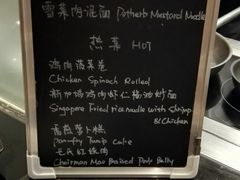 雪菜肉泥面 Potherb Mustard Noodle
热菜 HOT
鸡肉菠菜卷
Chicken Spinach Rolled
新加坡鸡肉虾仁猪油炒面
Singapore Fried rice noodle with Shrimp
& Chicken
香煎萝卜糕
Pan-fry Turnip cake
毛氏红烧肉
Chairman Mao Braised Pork Belly